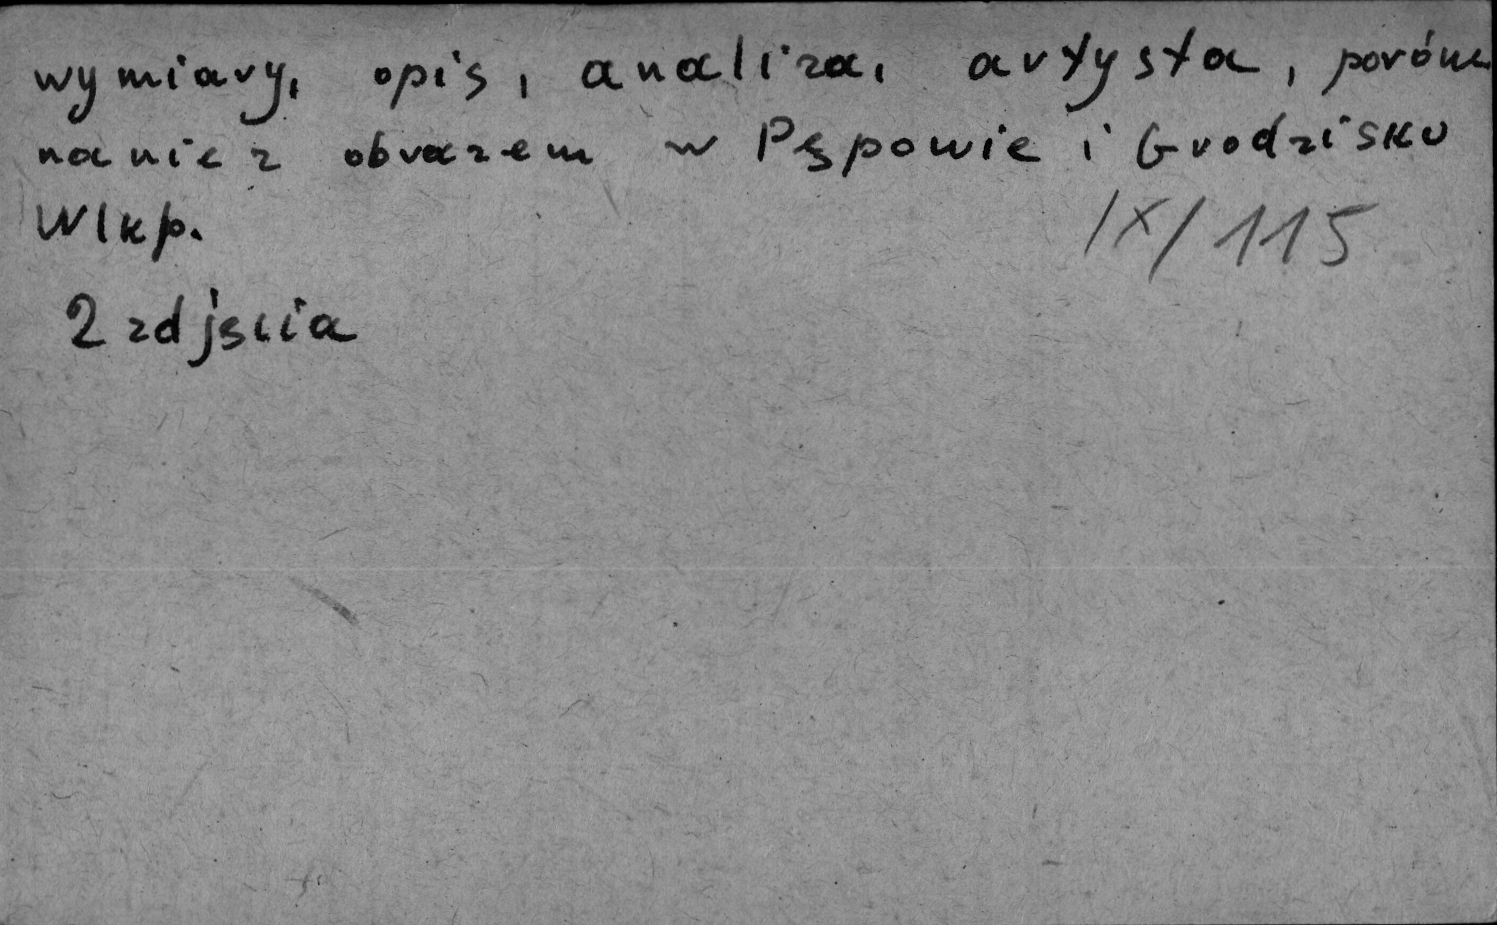 wymiary, opis, analiza, artysta, porów
nanie z obrazem w Pępowie i Grodzisku
Wlkp.
IX/115
2 zdjęcia